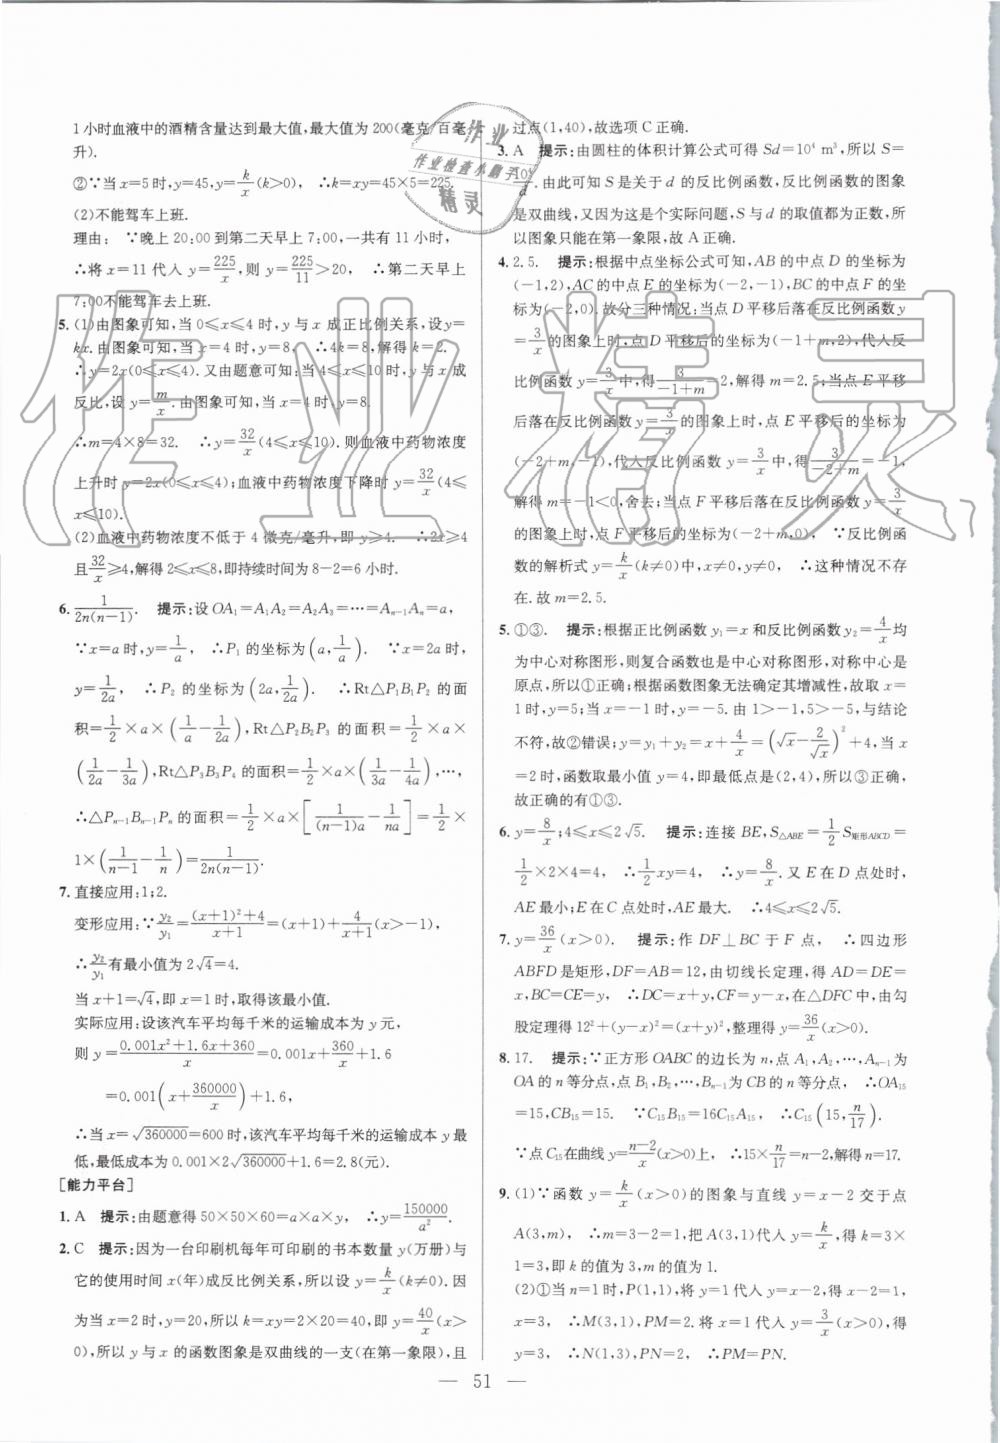 1小时血液中的酒精含量达到最大值,最大值为200(毫克/百毫
升).
②∵当x=5时,y=45,y=k/x(k>0), ∴k=xy=45×5=225.
(2)不能驾车上班.
理由: ∵晚上20:00到第二天早上7:00,一共有11小时,
∴将x=11代入y=225/x,则y=225/11>20, ∴第二天早上
7:00不能驾车去上班.
5. (1)由图象可知,当0≤x≤4时,y与x成正比例关系,设y=
kx.由图象可知,当x=4时,y=8, ∴4k=8,解得k=2.
∴y=2x(0≤x≤4).又由题意可知:当4≤x≤10时,y与x成
反比,设y=m/x.由图象可知,当x=4时,y=8.
∴m=4×8=32. ∴y=32/x(4≤x≤10).则血液中药物浓度
上升时y=2x(0≤x≤4);血液中药物浓度下降时y=32/x(4≤
x≤10).
(2)血液中药物浓度不低于4微克/毫升,即y≥4. ∴2x≥4
且32/x≥4,解得2≤x≤8,即持续时间为8-2=6小时.
6. 1/(2n(n-1)). 提示:设OA₁=A₁A₂=A₂A₃=…=Aₙ₋₁Aₙ=a,
∵x=a时,y=1/a, ∴P₁的坐标为(a,1/a). ∵x=2a时,
y=1/(2a), ∴P₂的坐标为(2a,1/(2a)). ∴Rt△P₁B₁P₂的面
积=1/2×a×(1/a-1/(2a)),Rt△P₂B₂P₃的面积=1/2×a×
(1/(2a)-1/(3a)),Rt△P₃B₃P₄的面积=1/2×a×(1/(3a)-1/(4a)),…,
∴△Pₙ₋₁Bₙ₋₁Pₙ的面积=1/2×a×[1/((n-1)a)-1/(na)]=1/2×
1×(1/(n-1)-1/n)=1/(2n(n-1)).
7. 直接应用:1;2.
变形应用:∵y₂/y₁=((x+1)²+4)/(x+1)=(x+1)+4/(x+1)(x>-1),
∴y₂/y₁有最小值为2√4=4.
当x+1=√4,即x=1时,取得该最小值.
实际应用:设该汽车平均每千米的运输成本为y元,
则y=(0.001x²+1.6x+360)/x=0.001x+360/x+1.6
=0.001(x+360000/x)+1.6,
∴当x=√360000=600时,该汽车平均每千米的运输成本y最
低,最低成本为0.001×2√360000+1.6=2.8(元).
[能力平台]
1. A 提示:由题意得50×50×60=a×a×y, ∴y=150000/a².
2. C 提示:因为一台印刷机每年可印刷的书本数量y(万册)与
它的使用时间x(年)成反比例关系,所以设y=k/x(k≠0).因
为当x=2时,y=20,所以k=xy=2×20=40,所以y=40/x(x>
0),所以y与x的函数图象是双曲线的一支(在第一象限),且
过点(1,40),故选项C正确.
3. A 提示:由圆柱的体积计算公式可得Sd=10⁴ m³,所以S=
10⁴/d.由此可知S是关于d的反比例函数,反比例函数的图象
是双曲线,又因为这是个实际问题,S与d的取值都为正数,所
以图象只能在第一象限,故A正确.
4. 2.5. 提示:根据中点坐标公式可知,AB的中点D的坐标为
(-1,2),AC的中点E的坐标为(-2,-1),BC的中点F的坐
标为(-2,0).故分三种情况:当点D平移后落在反比例函数y
=3/x的图象上时,点D平移后的坐标为(-1+m,2),代入反
比例函数y=3/x中,得3/(-1+m)=2,解得m=2.5;当点E平移
后落在反比例函数y=3/x的图象上时,点E平移后的坐标为
(-2+m,-1),代入反比例函数y=3/x中,得3/(-2+m)=-1,
解得m=-1<0,舍去;当点F平移后落在反比例函数y=3/x
的图象上时,点F平移后的坐标为(-2+m,0), ∵反比例函
数的解析式y=k/x(k≠0)中,x≠0,y≠0, ∴这种情况不存
在.故m=2.5.
5. ①③. 提示:根据正比例函数y₁=x和反比例函数y₂=4/x均
为中心对称图形,则复合函数也是中心对称图形,对称中心是
原点,所以①正确;根据函数图象无法确定其增减性,故取x=
1时,y=5;当x=-1时,y=-5.由1>-1,5>-5,与结论
不符,故②错误;y=y₁+y₂=x+4/x=(√x-2/√x)²+4,当x
=2时,函数取最小值y=4,即最低点是(2,4),所以③正确,
故正确的有①③.
6. y=8/x;4≤x≤2√5. 提示:连接BE,S△ABE=1/2S矩形ABCD=
1/2×2×4=4, ∴1/2xy=4, ∴xy=8, ∴y=8/x.又E在D点处时,
AE最小;E在C点处时,AE最大. ∴4≤x≤2√5.
7. y=36/x(x>0). 提示:作DF⊥BC于F点, ∴四边形
ABFD是矩形,DF=AB=12,由切线长定理,得AD=DE=
x,BC=CE=y, ∴DC=x+y,CF=y-x,在△DFC中,由勾
股定理得12²+(y-x)²=(x+y)²,整理得y=36/x(x>0).
8. 17. 提示:∵正方形OABC的边长为n,点A₁,A₂,…,Aₙ₋₁为
OA的n等分点,点B₁,B₂,…,Bₙ₋₁为CB的n等分点, ∴OA₁₅
=15,CB₁₅=15. ∵C₁₅B₁₅=16C₁₅A₁₅, ∴C₁₅(15,n/17).
∵点C₁₅在曲线y=(n-2)/x(x>0)上, ∴15×n/17=n-2,解得n=17.
9. (1)∵函数y=k/x(x>0)的图象与直线y=x-2交于点
A(3,m), ∴m=3-2=1,把A(3,1)代入y=k/x,得k=3×
1=3,即k的值为3,m的值为1.
(2)①当n=1时,P(1,1),将y=1代入y=x-2,得x-2=1,
x=3, ∴M(3,1),PM=2.将x=1代入y=3/x(x>0),得
y=3, ∴N(1,3),PN=2, ∴PM=PN.
— 51 —
作业精灵
作业
作业检查小助手
精灵